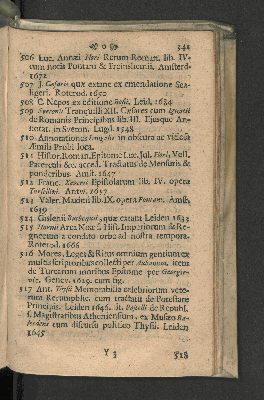 341
506 Luc. Annæi Flori Rerum Roman. lib. IV.
cum notis Pontani & Freinshemii, Amsterd.
1672
507 J. Cæsaris quæ extant ex emendatione Sca-
ligeri. Roterod. 1650
508 C. Nepos ex editione Leid. 1684
509 Suetonii Tranquilli XII. Cæsares cum Ignatii
de Romanis Principibus lib. III. Ejusque An-
notat. in Sueton. Lugd. 1548
510 Annotationes in obscura ac vitiosa
Æmili Probi loca.
511 Histor. Roman. Epitome Luc. Jul. Flori, Vell.
Paterculi &c. acced. Tractatus de Mensuris &
ponderibus. Amst. 1647
512 Franc. Epistolarum lib. IV. opera
Antw. 1657
513 Valer. Maximi lib. IX. opera Amst.
1639
514 Gislenii Busbequii, quæ extant Leiden 1633
515 Hornii Arca Noæ s. Hist. Imperiorum & Re-
gnorum à condito orbe ad nostra tempora.
Roterod. 1666
516 Mores, Leges & Ritus omnium gentium ex
multis scriptoribus collecti per item
de Turcarum moribus Epitome per Georgie-
Genev. 1629. cum fig.
517 Ant. Thysii Memorabilia celebriorum vete-
rum Rerumpblic. cum tractatu de Potestate
Principis. Leiden 1646. it. Postelli de Republ.
s. Magistratibus Atheniensium, ex Musæo
cum discursu politico Thysii. Leiden
1645
Y 3
518